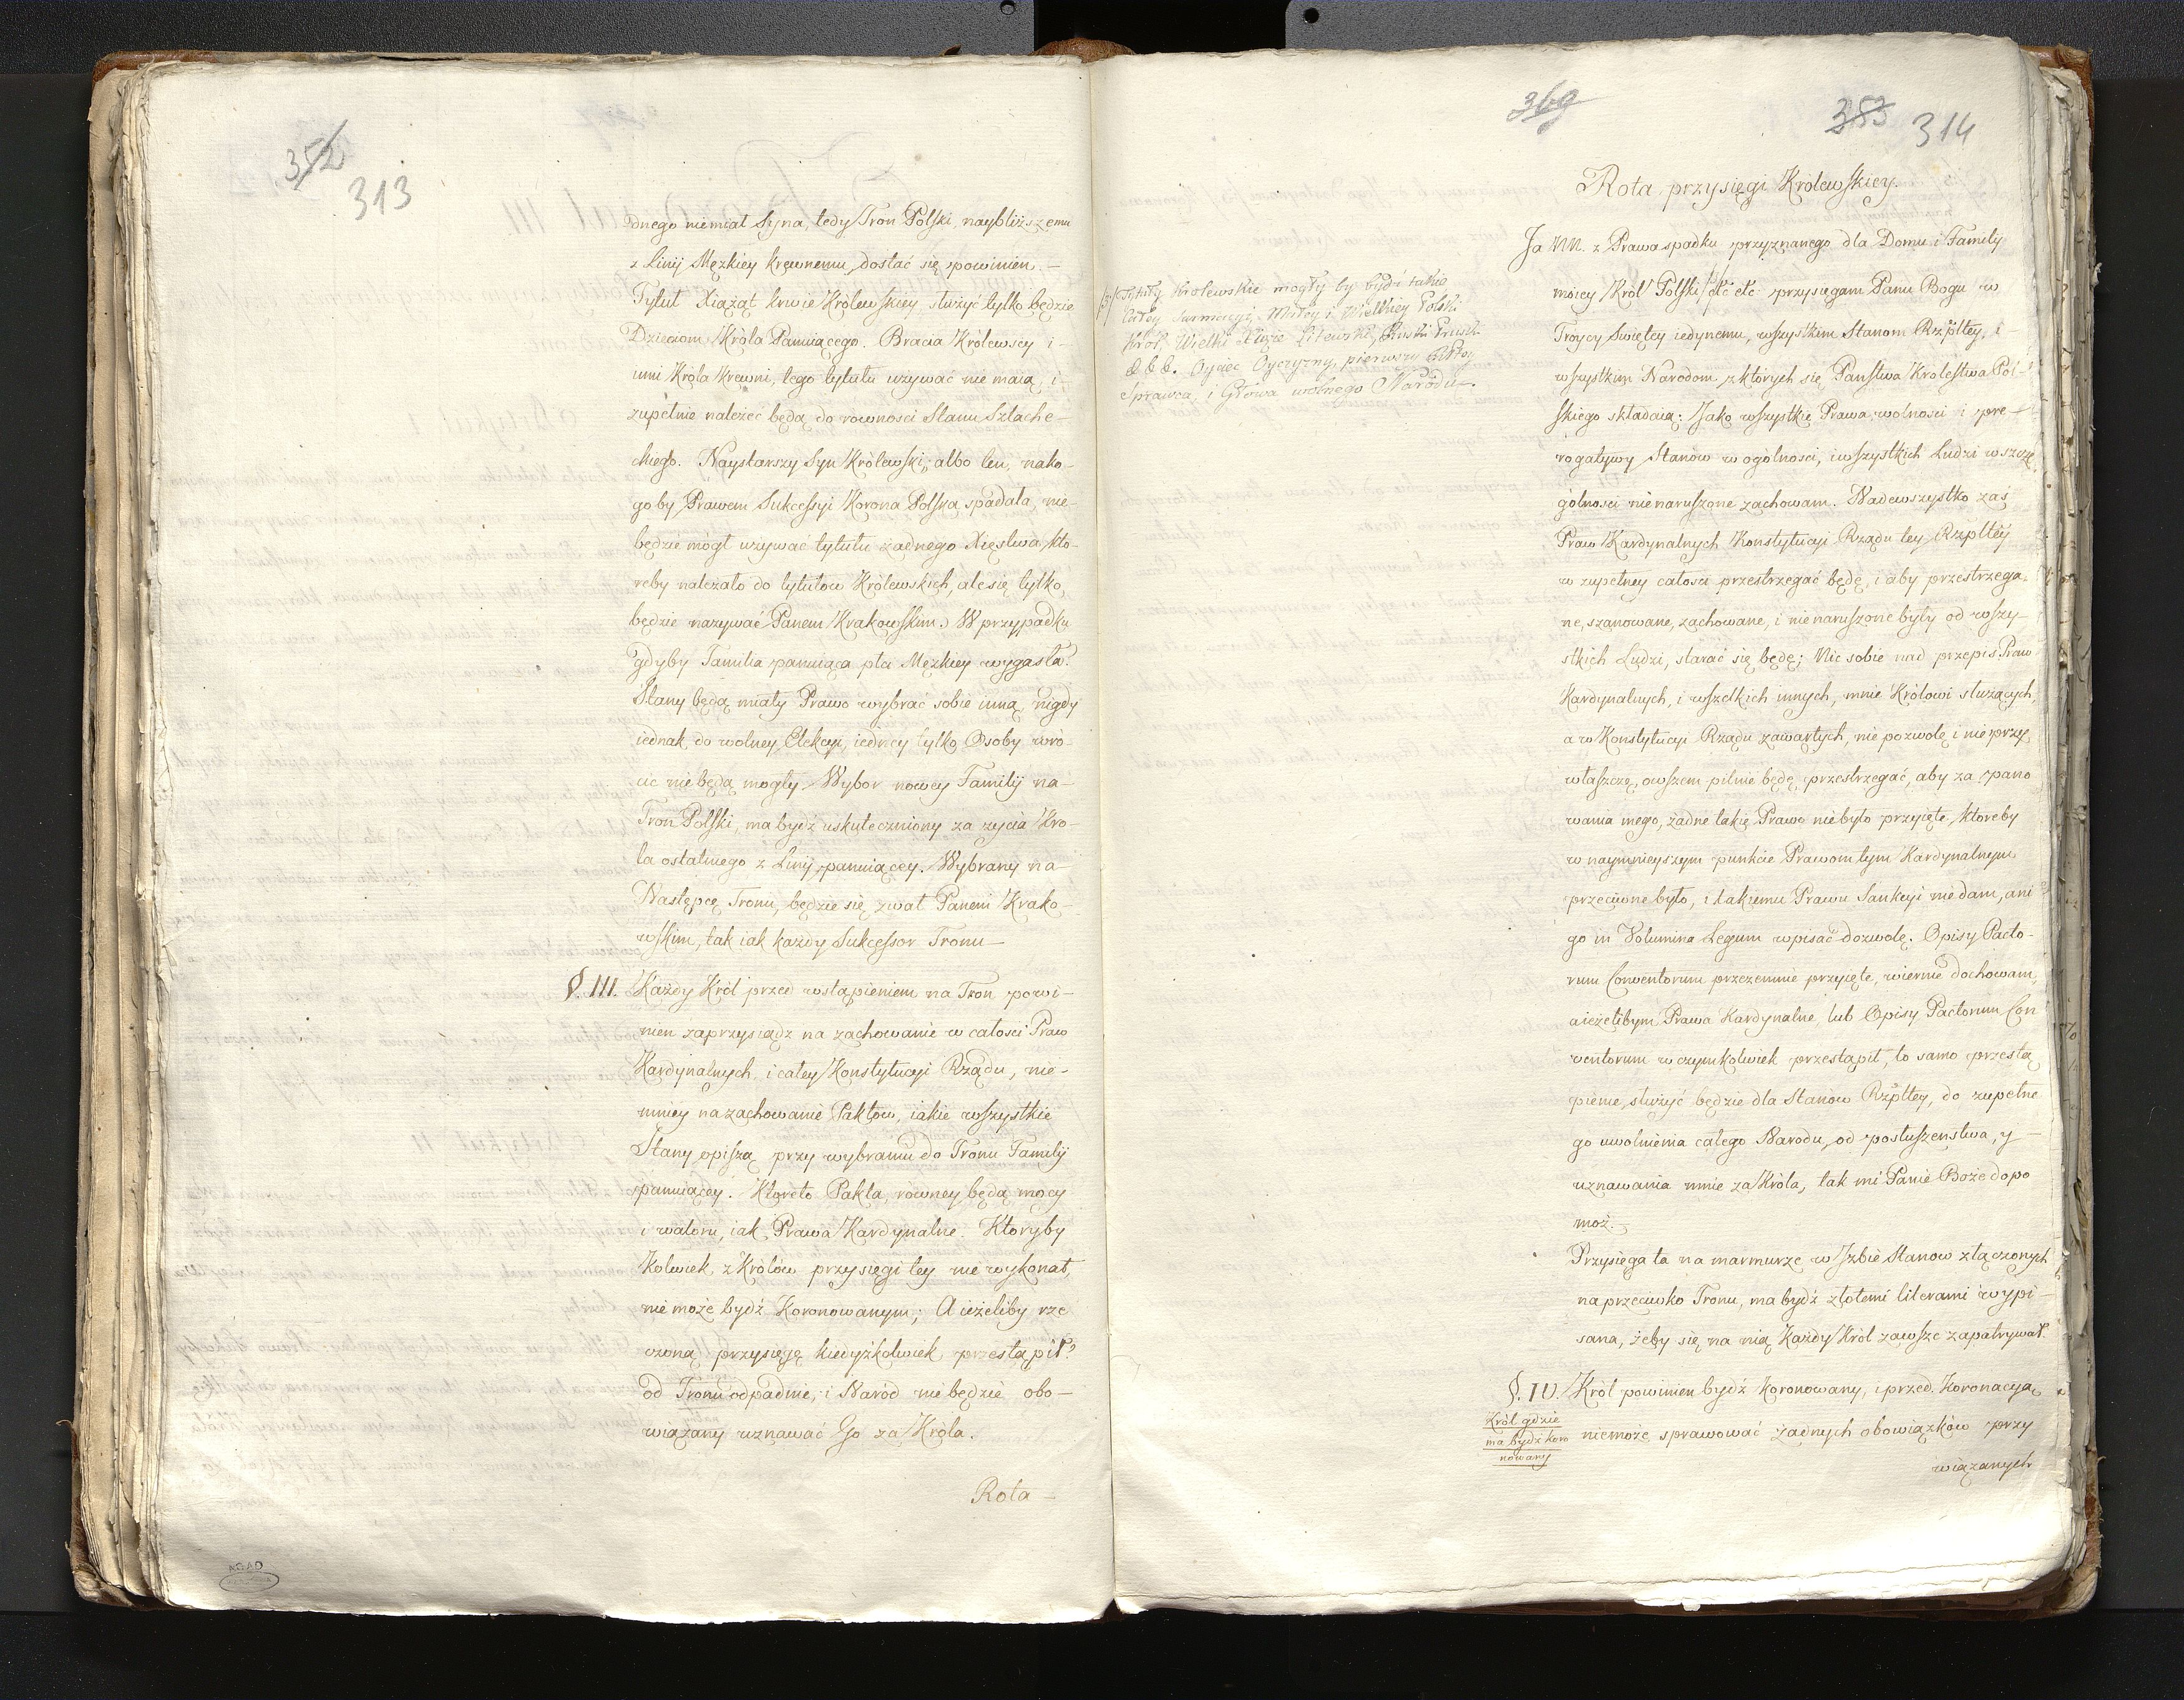 352
313
dnego niemiał Syna, tedy Tron Polski, naybliższemu
z Linij Męzkiey krewnemu, dostać się powinien. —
Tytuł Xiążąt krwie Królewskiey, służyć tylko będzie
Dzieciom Króla Panuiącego. Bracia Królewscy i —
inni Króla Krewni, tego tytułu używać nie maią, i
zupełnie należeć będą do równosci Stanu Szlache —
ckiego. Naystarszy Syn Królewski, albo ten, na ko —
goby Prawem Sukcessyi Korona Polska spadała, nie —
będzie mógł używać tytułu żadnego Xięstwa, kto —
reby należało do tytułow Królewskich, ale się tylko,
będzie nazywać Panem Krakowskim. W przypadku
gdyby Familia panuiąca płci Męzkiey wygasła?
Stany będą miały Prawo wybrać sobie inną, nigdy
iednak, do wolney Elekcyi, iedney tylko Osoby wró —
cic nie będą mogły. Wybor nowey Familij na —
Tron Polski, ma bydź uskuteczniony za życia Kró —
la ostatniego z Linij panuiącey. Wybrany na —
Następcę Tronu, będzie się zwał Panem Krako —
wskim, tak iak każdy Sukcessor Tronu —
§. III. Każdy Król przed wstąpieniem na Tron powi —
nien zaprzysiądz na zachowanie w całosci Praw
Kardynalnych, i całey Konstytucyi Rządu, nie —
mniey na zachowanie Paktow, iakie wszystkie
Stany opiszą przy wybraniu do Tronu Familij
panuiącey. Któreto Pakta, rowney będą mocy
i waloru, iak Prawa Kardynalne. Ktoryby
Kolwiek z Królów przysięgi tey nie wykonał,
nie może bydź Koronowanym; A ieżeliby rze
czoną przysięgę kiedyżkolwiek przestąpił?
od Tronu odpadnie, i Naród nie będzie obo —
wiązany uznawać Go za Króla.
Rota —
AGAD
369
383 314
Tytuły Krolewskie mogły by bydź takie
całey Sarmacyi, Małey i Wielkiey Polski
Król, Wielki Xiąże Litewski, Ruski Pruski
&&&. Oyciec Oyczyzny, pierwszy
Sprawca, i Głowa wolnego Narodu.
Rota przysięgi Królewskiey.
Ja NN. z Prawa spadku przyznanego dla Domu i Familij
moiey Król Polski etc etc przysięgam Panu Bogu w
Troycy Swiętey iedynemu, wszystkim Stanom Rzpltey, i —
wszystkim Narodom z których się Państwa Krolestwa Pol —
skiego składaią: Jako wszystkie Prawa, wolności i pre —
rogatywy Stanów w ogólnosci, i wszystkich Ludzi w szcze
gólnosci nienaruszone zachowam. Nadewszystko zaś
Praw Kardynalnych Konstytucyi Rządu tey Rzpltey
w zupełney całosci przestrzegać będę, i aby przestrzega —
ne, szanowane, zachowane, i nienaruszone były od wszy —
stkich Ludzi, starać się będę; Nic sobie nad przepis Praw
Kardynalnych, i wszelkich innych, mnie Królowi służących,
a w Konstytucyi Rządu zawartych, nie pozwolę i nie przy
właszczę, owszem pilnie będę przestrzegać, aby za pano
wania mego, żadne takie Prawo nie było przyięte, ktoreby
w naymnieyszym punkcie Prawom tym Kardynalnym
przeciwne było, i takiemu Prawu Sankcyi nie dam, ani
go in Volumina Legum wpisać dozwolę. Opisy Pacto —
rum Conventorum przezemnie przyięte, wiernie dochowam,
a ieżelibym Prawa Kardynalne lub Opisy Pactorum Con
ventorum w czymkolwiek przestąpił, to samo przestą
pienie, służyć będzie dla Stanow Rzpltey, do zupełne
go uwolnienia całego Narodu, od posłuszenstwa, y —
uznawania mnie za Króla, tak mi Panie Boże dopo
moż. —
Przysięga ta na marmurze w Izbie Stanow złączonych
na przeciwko Tronu, ma bydź złotemi literami wypi —
sana, żeby się na nią Każdy Król zawsze zapatrywał.
§. IV. Król powinien bydź koronowany, i przed Koronacyą
Król gdzie
ma bydź koro
nowany
niemoże sprawować żadnych obowiązków przy
wiązanych